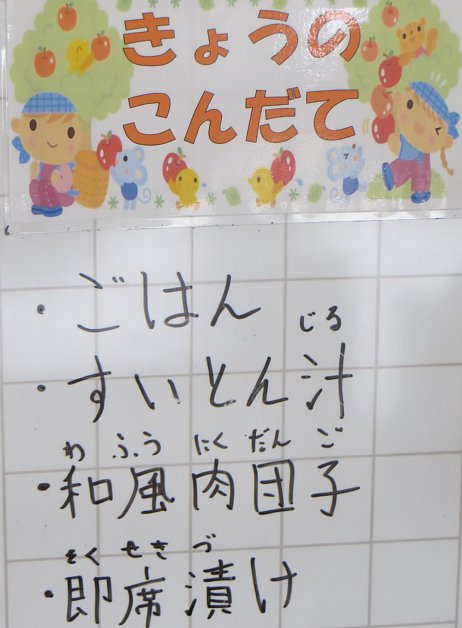 きょうの
こんだて
・ごはん
じる
・すいとん汁
わ ふう にく だん ご
・和風肉団子
そく せき づ
・即席漬け